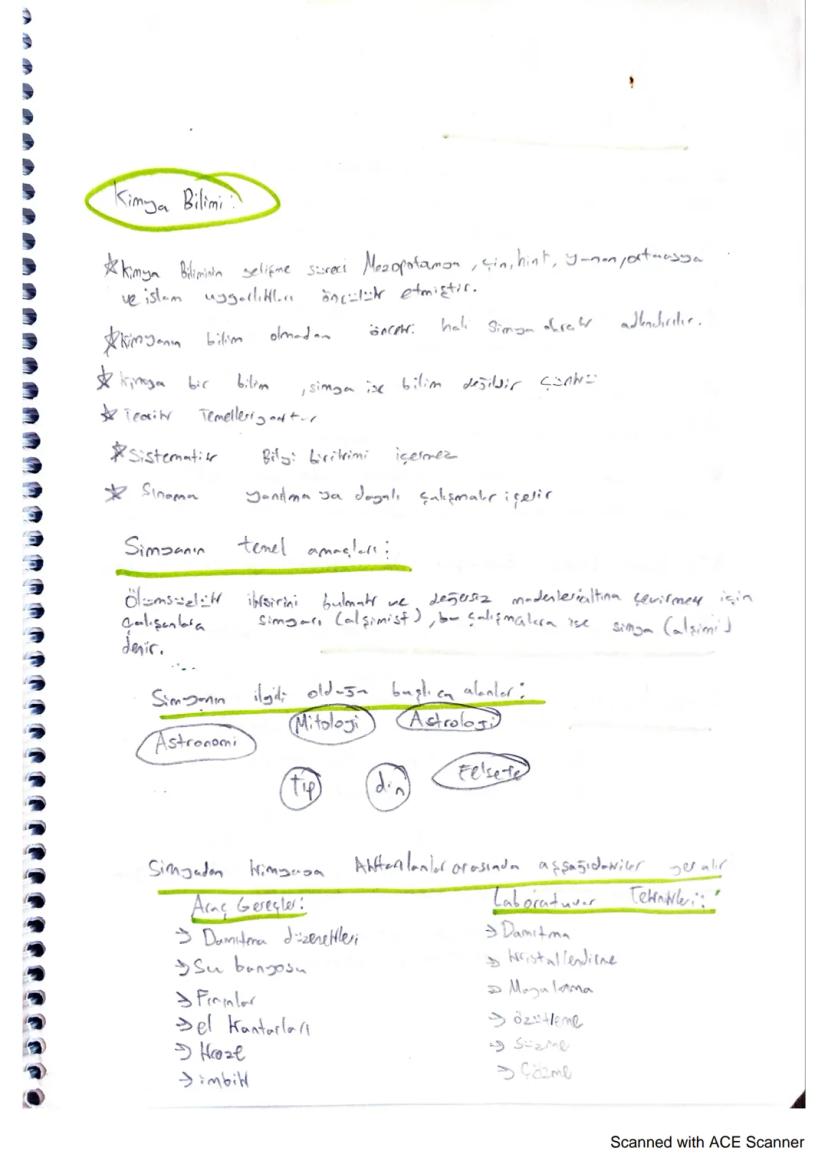 Kimya Bilimi:
★ Kimya Biliminin gelişme süreci Mezopotamya, çin, hint, yunan, ortaasya
ve islam uygarlıkları öncülük etmiştir.
★ Kimyanın bilim olmadan önceki hali Simya olarak adlandırılır.
★ Kimya bir bilim, simya ise bilim değildir çünkü
★ Teorik Temelleri yoktur
★ Sistematik Bilgi birikimi içermez
★ Sınama yanılmaya dayalı çalışmalar içerir
Simyanın temel amaçları:
Ölümsüzlük iksirini bulmak ve değersiz madenleri altına çevirmek için
çalışanlara simyacı (alşimist), bu çalışmalara ise simya (alşimi)
denir.
Simyanın ilgili olduğu başlıca alanlar:
Mitoloji Astroloji
Astronomi
Tıp din Felsefe
Simyadan kimyaya Aktarılanlar arasında aşşağıdakiler yer alır
Araç Gereçler: Laboratuvar Teknikleri:
→ Damıtma düzenekleri → Damıtma
→ Su banyosu → Kristallendirme
→ Fırınlar → Mayalama
→ el Kantarları → özütleme
→ Kroze → Süzme
→ imbik → Çözme
Scanned with ACE Scanner